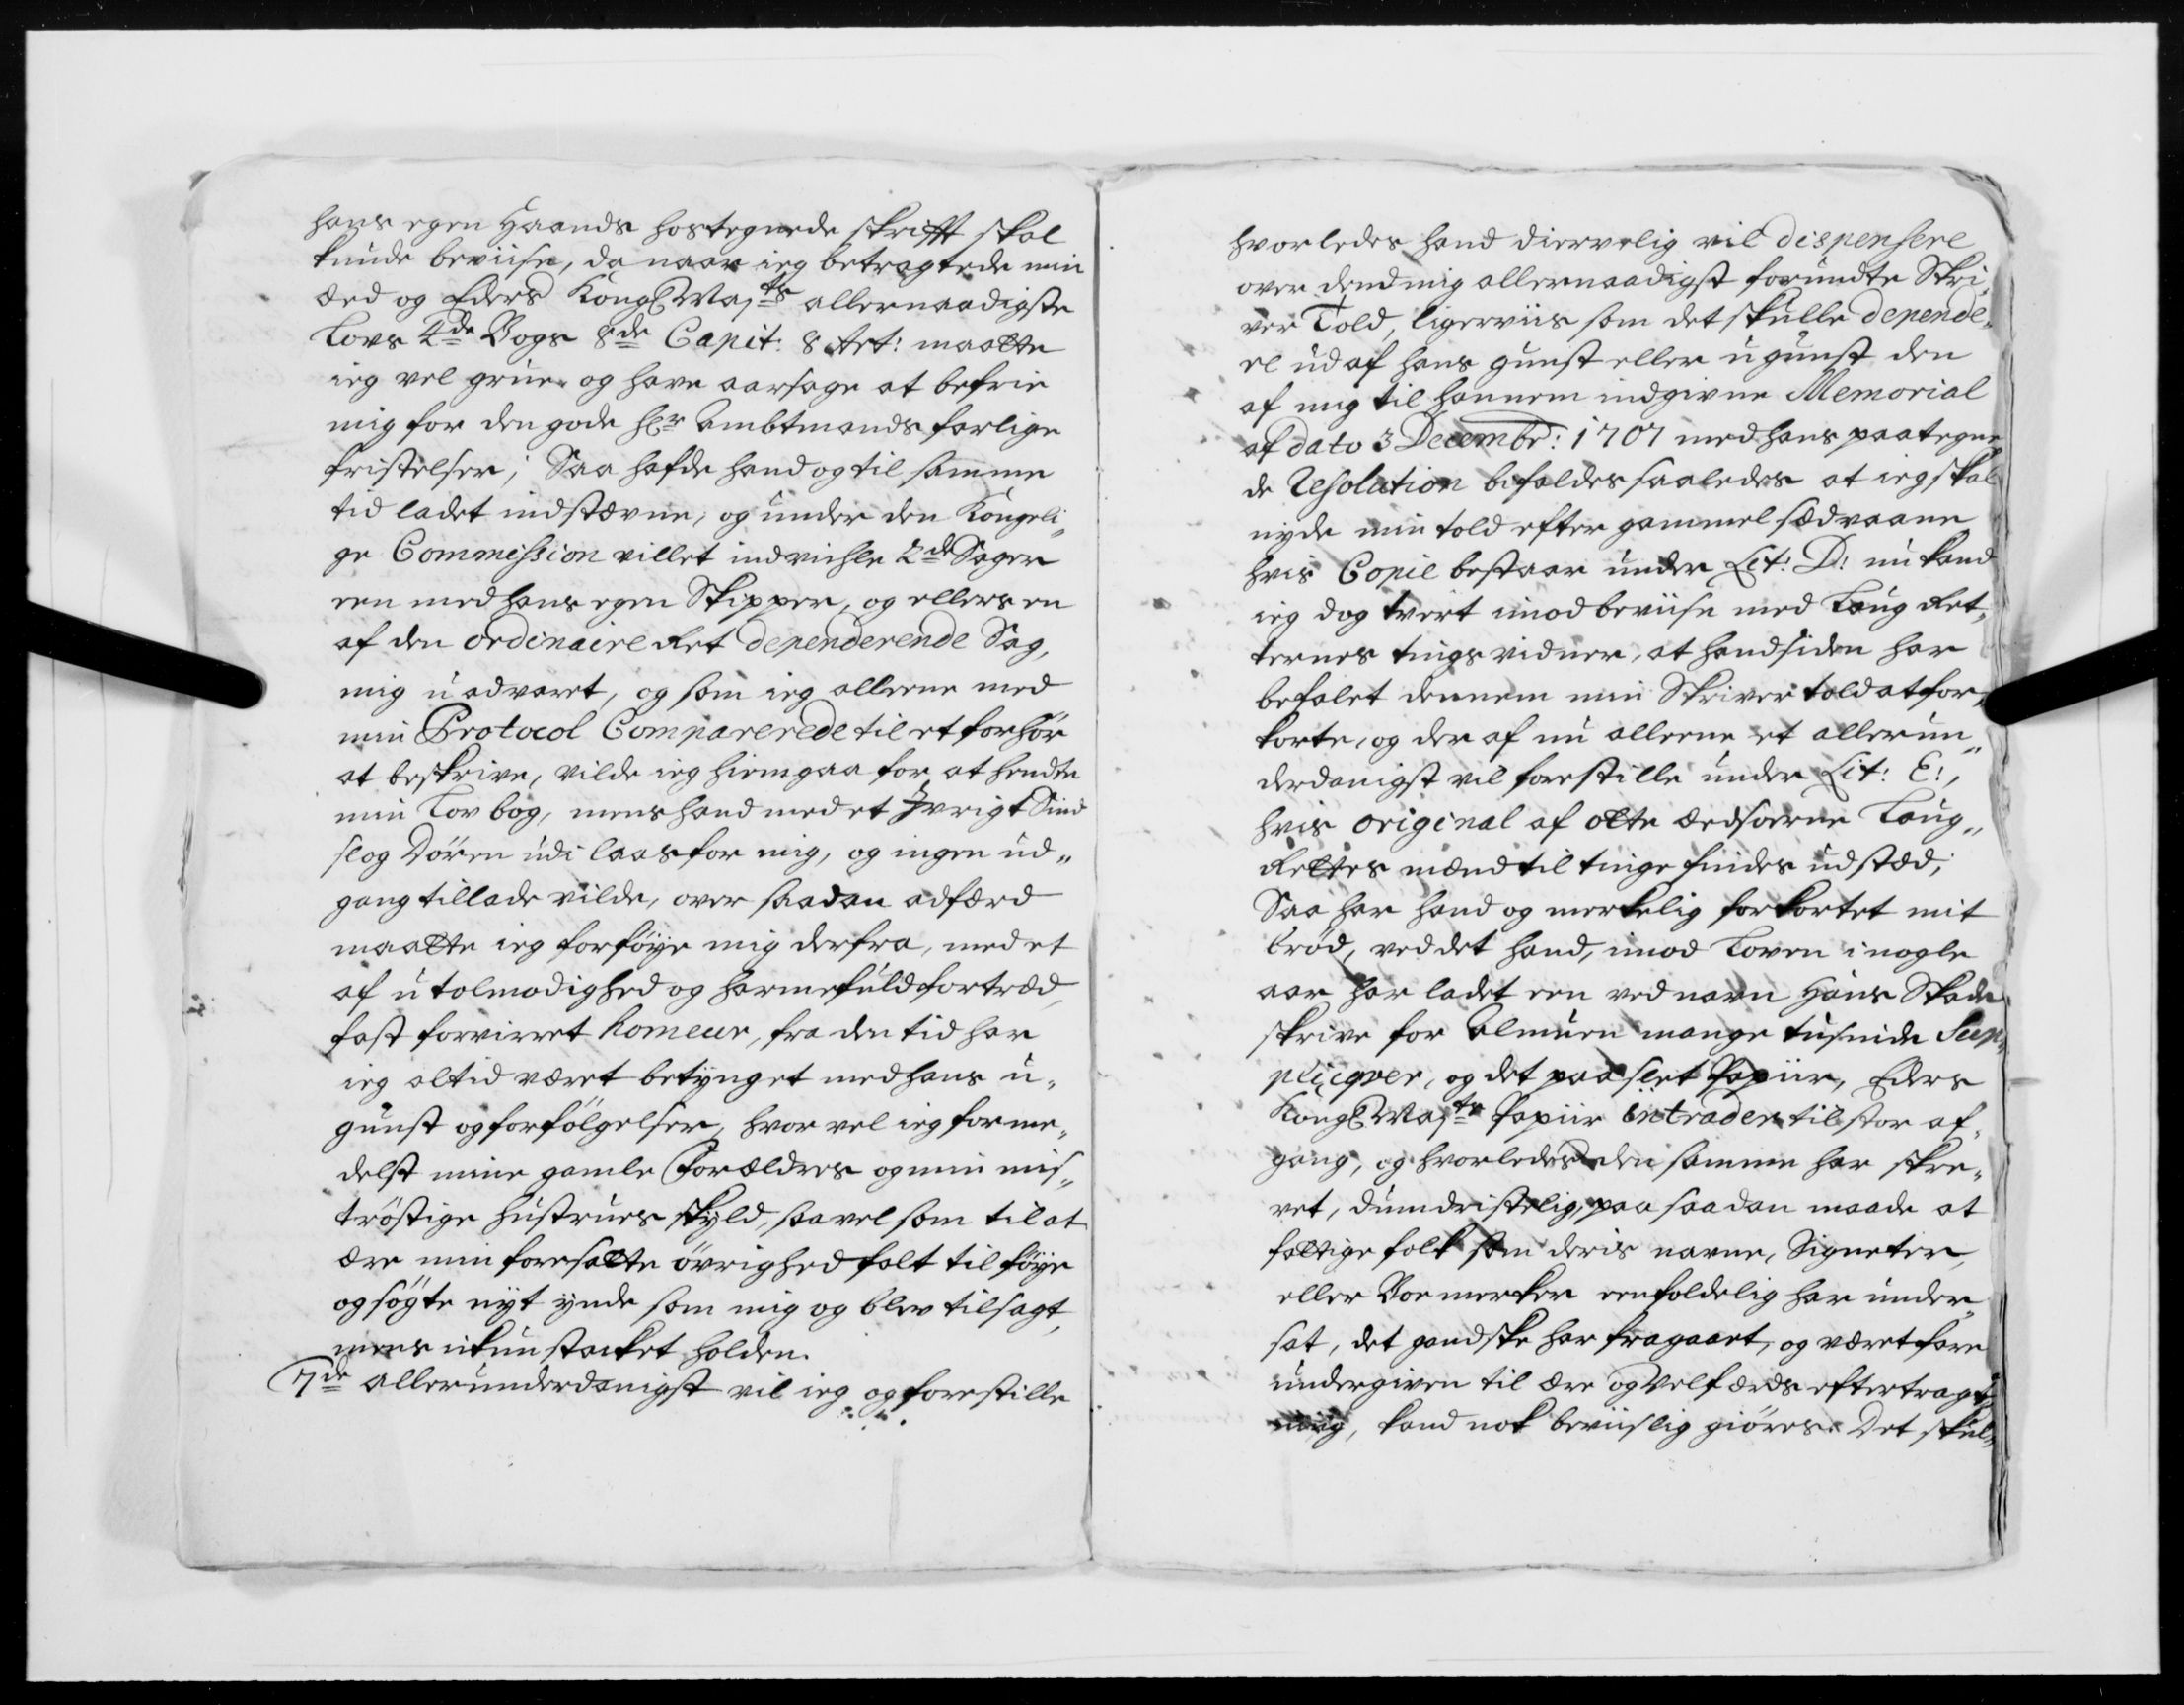 hans egen Haands hostegnede skrifft skal
kunde beviise, da naar ieg betragtede min
æd og Eders Kongl Majts allernaadigste
Lovs 4de Bogs 8de Capit: 8 Art: maatte
ieg vel grue og have aarsage at befrie
mig for den gode Hr Ambtmands farlige
fristelser; Saa hafde hand og til samme
tid ladet indstævne, og under den Kongeli„
ge Commission villet indvichle 2de Sager
een med hans egen Skipper, og ellers en
af den ordinaire Ret dependerende Sag,
mig uadvaret, og som ieg alleene med
min Protocol Comparerede til et forhör
at beskrive, vilde ieg hiemgaa for at hendte
min Lov bog, mens hand med et Ivrigt Sind
slog Dören udi laas for mig, og ingen ud„
gang tillade vilde, over saadan adfærd
maatte ieg forföye mig derfra, med et
af utolmodighed og harmefuld fortræd,
fast forvirret homeur, fra den tid har
ieg altid været betynget med hans u„
gunst og forfölgelser, hvor vel ieg forme„
delst mine gamle Forældres og min mis„
tröstige hustrues skyld, saavel som til at
ære min foresatte övrighed falt til föye
og sögte nyt ynde som mig og blev tilsagt,
mens ikun stacket holden.
7de allerunderdanigst vil ieg og forestille
hvorledes hand diervelig vil dispensere
over dend mig allernaadigst forundte Skri„
ver Told, ligerviis som det skulle depende„
re ud af hans gunst eller ugunst den
af mig til hannem indgivne Memorial
af dato 3 Decembr: 1707 med hans paategne„
de Resolution befaldes saaledes at ieg skal
nyde min told efter gammel sædvaane
hvis Copie bestaar under Lit: D: nu kand
ieg dog tvert imod beviise med Laug Ret„
ternes tings vidner, at hand siden har
befalet dennem min Skriver told at for„
korte, og der af nu alleene et allerun„
derdanigst vil forestille under Lit: E:,
hvis original af otte ædsorne Laug„
Rettes mænd til tinge findes udstæd;
Saa har hand og merkelig forkortet mit
bröd, ved det hand, imod Loven i nogle
aar har ladet een ved navn Hans Skade
skrive for Almuen mange tusinde Sup„
plicqver, og det paa slet Papiir, Eders
Kongl Majts Papiir intrader til stor af„
gang, og hvorledes den samme har skre„
vet, dumdristelig, paa saadan maade at
fattige folk som deris navne, Signeter,
eller Boemerker eenfoldelig har under„
sat, det gandske har fragaaet, og været fare
undergiven til ære og Velfærds eftertragt„
ning, kand nok beviislig giöres. Det skul„